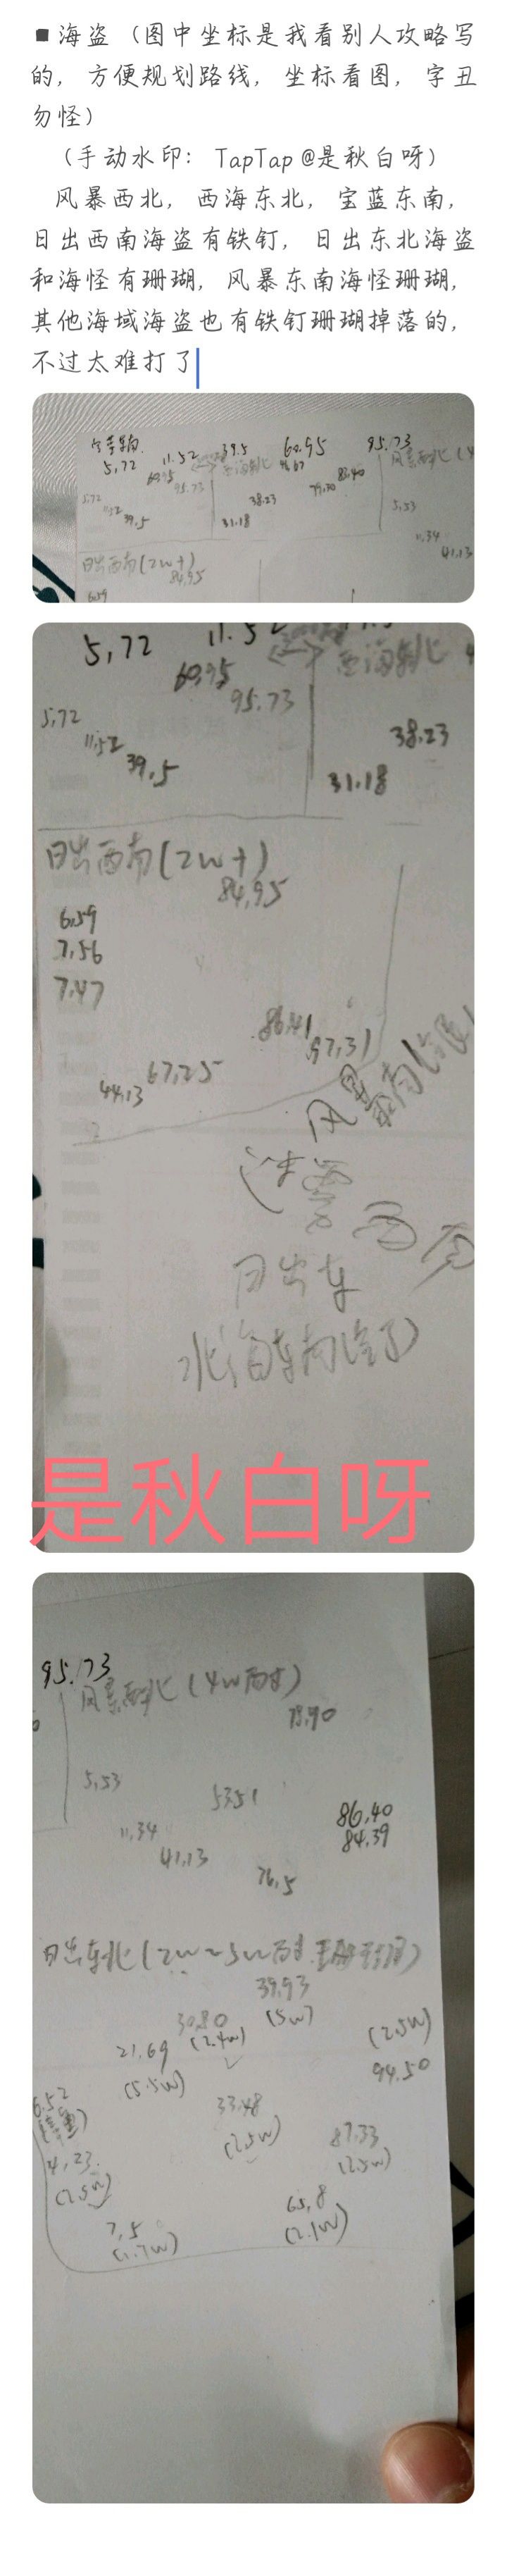 ■海盗（图中坐标是我看别人攻略写
的，方便规划路线，坐标看图，字丑
勿怪）
（手动水印：TapTap @是秋白呀）
风暴西北，西海东北，宝蓝东南，
日出西南海盗有铁钉，日出东北海盗
和海怪有珊瑚，风暴东南海怪珊瑚，
其他海域海盗也有铁钉珊瑚掉落的，
不过太难打了
5,72
11.52
39.5
60.95
95.73
60.95
95.73
西海东北
46.67
83.40
79.70
5,72
11.52
39.5
38.23
31.18
风暴西北(4
5,53
11,34
41,13
日出西南(2w+)
84,95
6,59
5,72
60,95
95.73
西海东北
5,72
11,52
39.5
38.23
31.18
日出西南(2w+)
84,95
6,59
7,56
7,47
86,41
97,31
67,25
44,13
风暴东南
迷雾西南
日出东
北
是秋白呀
95.73
风暴西北(4w
78,90
5,53
53,51
11,34
41,13
86,40
84,39
76,5
日出东北(2w~5w
39,93
(5w)
30,80
(2.4w)
21.69
(5.5w)
(2.5w)
94.50
6,52
33,48
(2.5w)
87,33
(2.5w)
4,23
(2.5w)
7,5
(1.7w)
65,8
(2.1w)